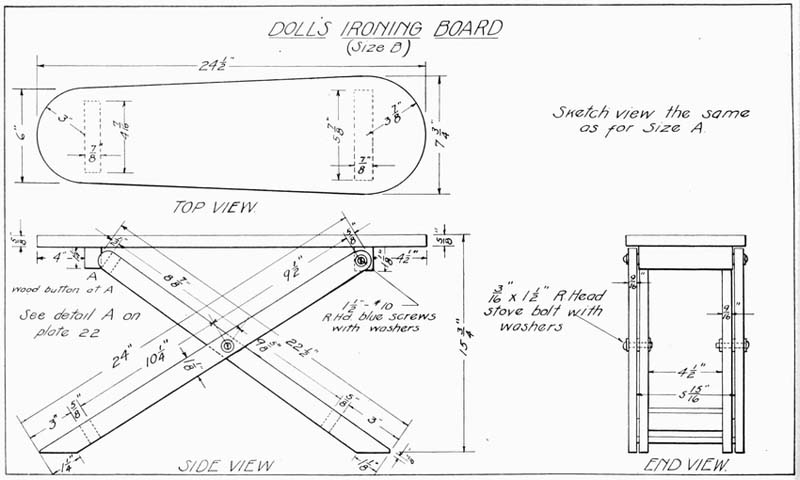 DOLL'S IRONING BOARD
(Size B)
24½"
6"
3"
4 7/16"
7/8"
5 7/8"
3 7/8"
7/8"
7 3/4"
Sketch view the same
as for Size A.
TOP VIEW.
5/8"
4"
A
Wood button at A
See detail A on
plate 22
8 7/8"
9½"
5/8"
4½"
5/8"
1½"-#10
R.Hd. blue screws
with washers
15 3/4"
24"
10¼"
1 1/8"
9 5/8"
22½"
3"
5/8"
1¼"
5/8"
3"
1 1/8"
SIDE VIEW
3/16" x 1½" R.Head
stove bolt with
washers
9/16"
9/16"
4½"
5 15/16"
END VIEW.